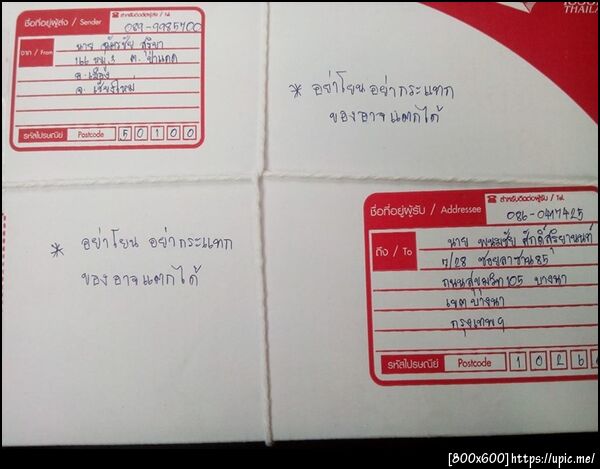 THAILAND
ชื่อที่อยู่ผู้ส่ง / Sender
☎ สำหรับติดต่อผู้ส่ง / Tel.
089-9985700
จาก / From
นาย ฉัตรชัย สุริยา
166 หมู่ 3 ต. ป่าแดด
อ. เมือง
จ. เชียงใหม่
รหัสไปรษณีย์ Postcode 50100
* อย่าโยน อย่ากระแทก
ของอาจแตกได้
* อย่าโยน อย่ากระแทก
ของอาจแตกได้
ชื่อที่อยู่ผู้รับ / Addressee
☎ สำหรับติดต่อผู้รับ / Tel.
086-0417425
ถึง / To
นาย พนมชัย ศักดิ์สุริยานนท์
7/28 ซอยลาซาล 85
ถนนสุขุมวิท 105 บางนา
เขต บางนา
กรุงเทพฯ
รหัสไปรษณีย์ Postcode 1026
[800x600]https://upic.me/